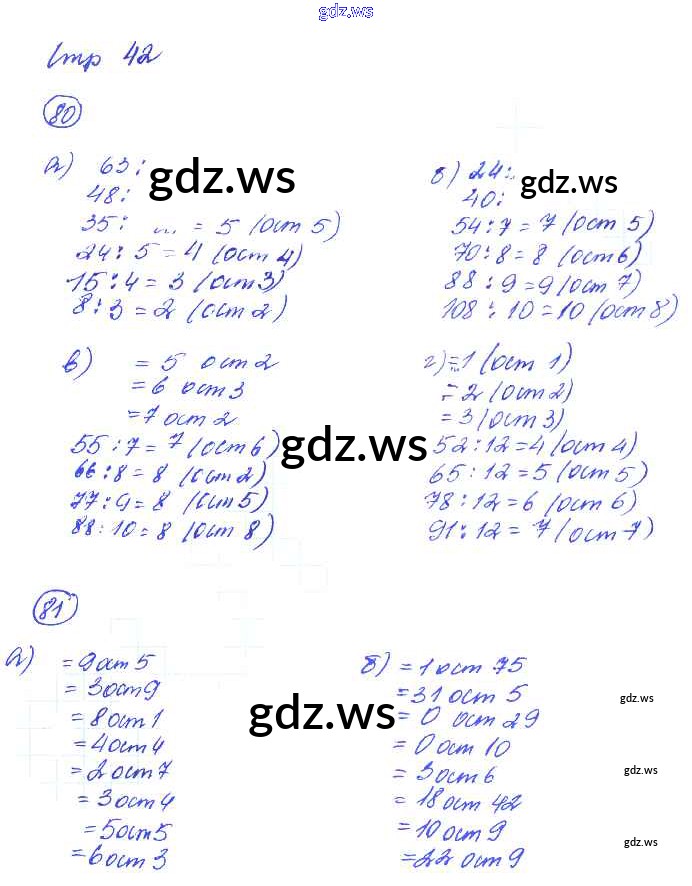 gdz.ws
Стр 42
80
а) 63:
48:
35: ... = 5 (ост 5)
24:5=4 (ост 4)
15:4=3 (ост 3)
8:3=2 (ост 2)
б) 24:
40:
54:7=7 (ост 5)
70:8=8 (ост 6)
88:9=9 (ост 7)
108:10=10 (ост 8)
gdz.ws
gdz.ws
в) =5 ост 2
=6 ост 3
=7 ост 2
55:7=7 (ост 6)
66:8=8 (ост 2)
77:9=8 (ост 5)
88:10=8 (ост 8)
г) =1 (ост 1)
=2 (ост 2)
=3 (ост 3)
52:12=4 (ост 4)
65:12=5 (ост 5)
78:12=6 (ост 6)
91:12=7 (ост 7)
gdz.ws
81
а) =9 ост 5
=3 ост 9
=8 ост 1
=4 ост 4
=2 ост 7
=3 ост 4
=5 ост 5
=6 ост 3
б) =1 ост 75
=31 ост 5
=0 ост 29
=0 ост 10
=3 ост 6
=18 ост 42
=10 ост 9
=22 ост 9
gdz.ws
gdz.ws
gdz.ws
gdz.ws